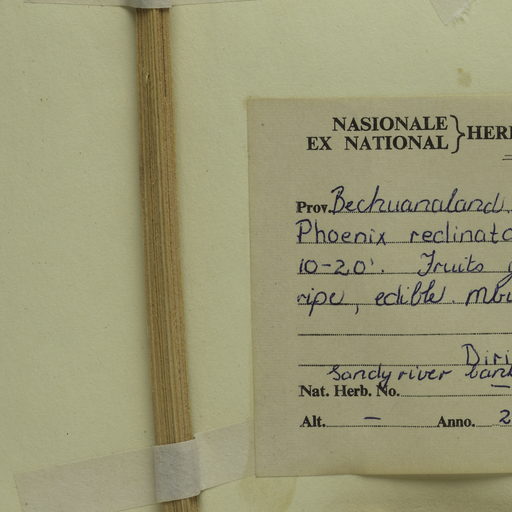 NASIONALE
EX NATIONAL } HER
Prov. Bechuanaland
Phoenix reclinata
10-20'. Fruits
ripe, edible.
Sandy river bank
Nat. Herb. No. —
Alt. — Anno. 2